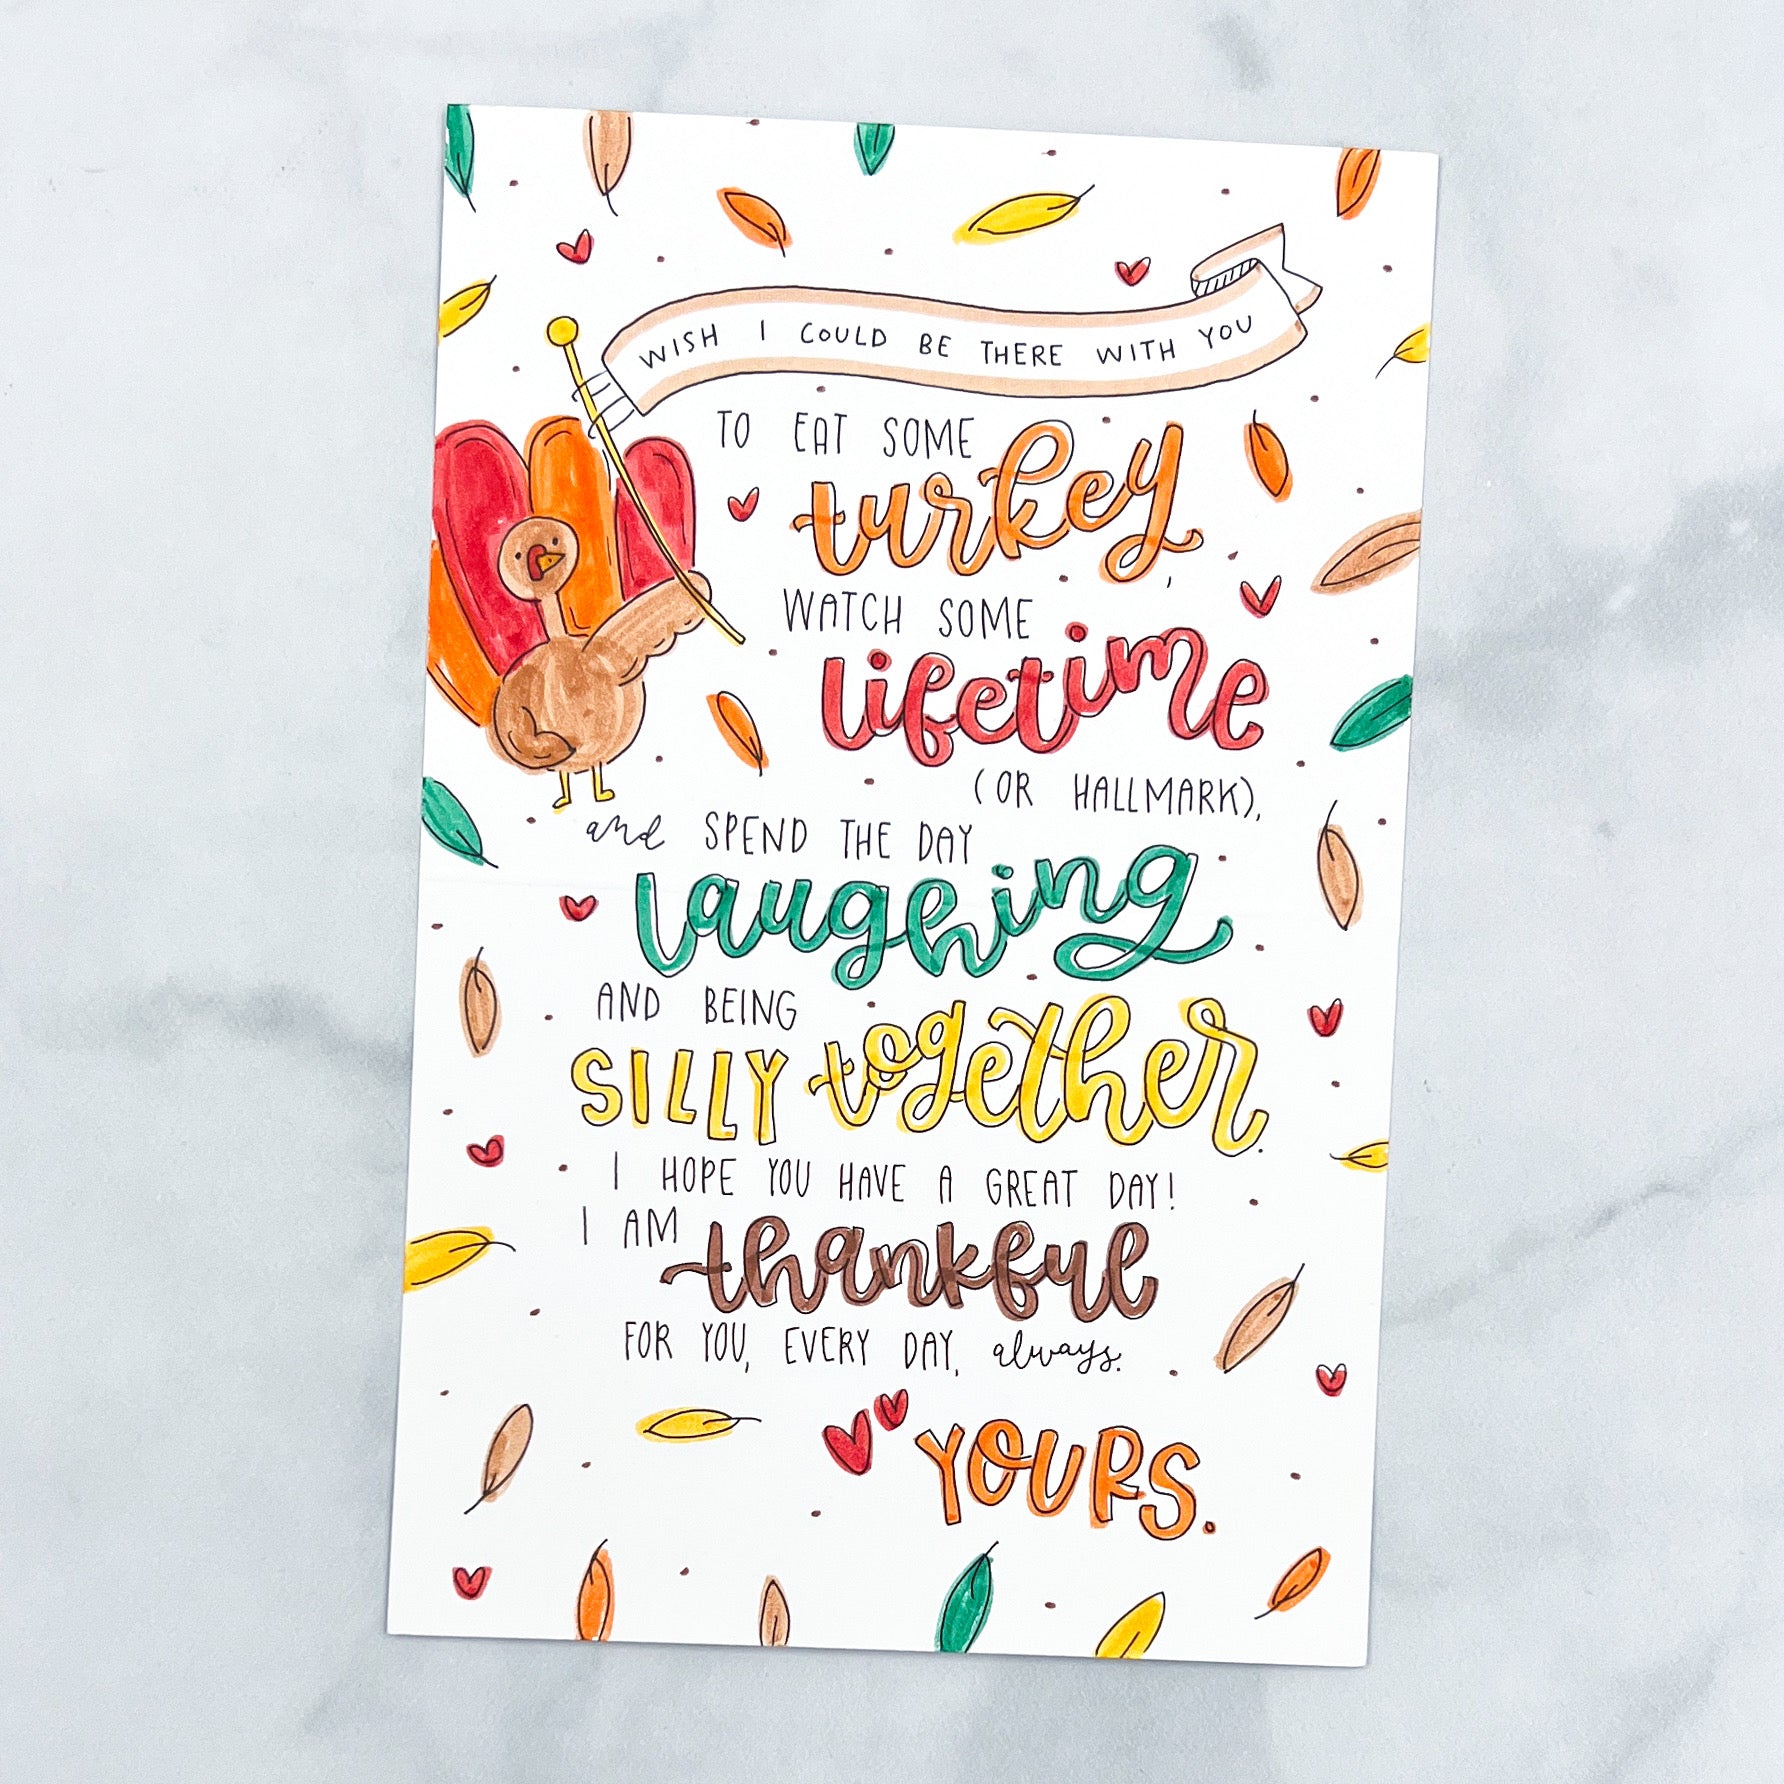 WISH I COULD BE THERE WITH YOU
TO EAT SOME
turkey,
WATCH SOME
lifetime
(OR HALLMARK),
and SPEND THE DAY
laughing
AND BEING
SILLY together.
I HOPE YOU HAVE A GREAT DAY!
I AM thankful
FOR YOU, EVERY DAY, always.
YOURS.